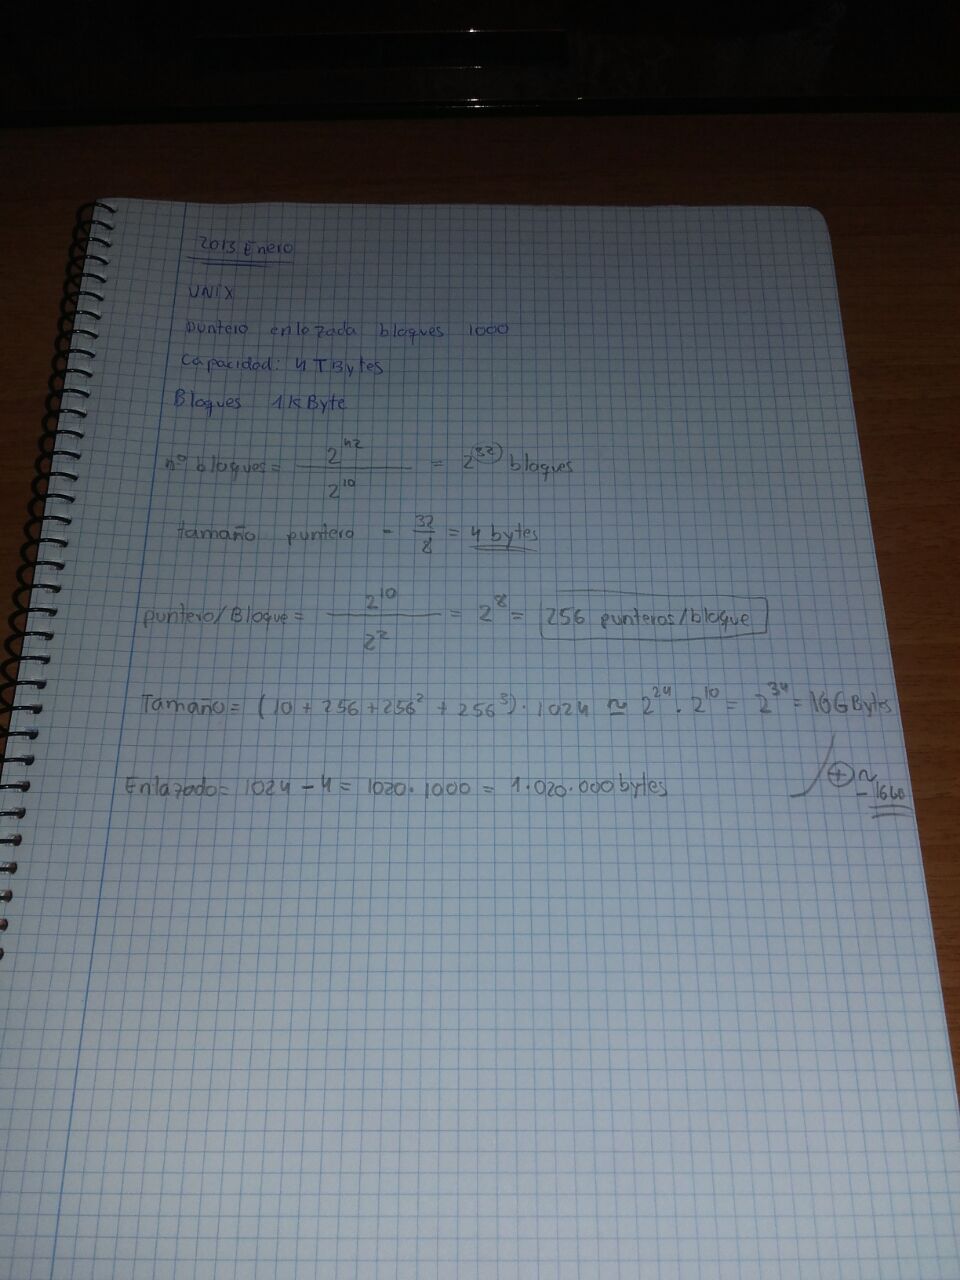 2013 Enero
UNIX
puntero enlazada bloques 1000
Capacidad: 4 TBytes
Bloques 1KByte
nº bloques = 2^42 / 2^10 = 2^32 bloques
tamaño puntero - 32/8 = 4 bytes
puntero/Bloque = 2^10 / 2^2 = 2^8 = 256 punteros/bloque
Tamaño = (10 + 256 + 256^2 + 256^3) · 1024 ≃ 2^24 · 2^10 = 2^34 = 16GBytes
Enlazado = 1024 - 4 = 1020 · 1000 = 1.020.000 bytes
+ ≃